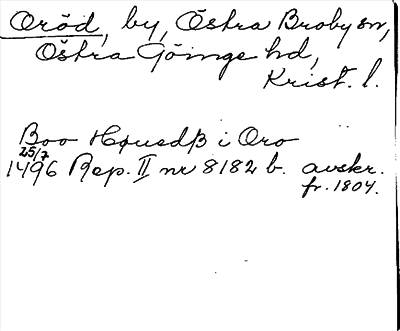 Oröd, by, Östra Broby sn,
Östra Göinge hd,
Krist. l.
Boo Hquedβ i Oro
25/7
1496 Rep. II nr 8182 b. avskr.
fr. 1804.